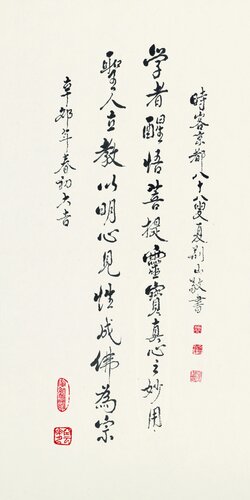 時客京都八十八叟夏荆山敬書
学者醒悟菩提靈寶真心之妙用
聖人立教以明心見性成佛為宗
辛卯年春初大吉